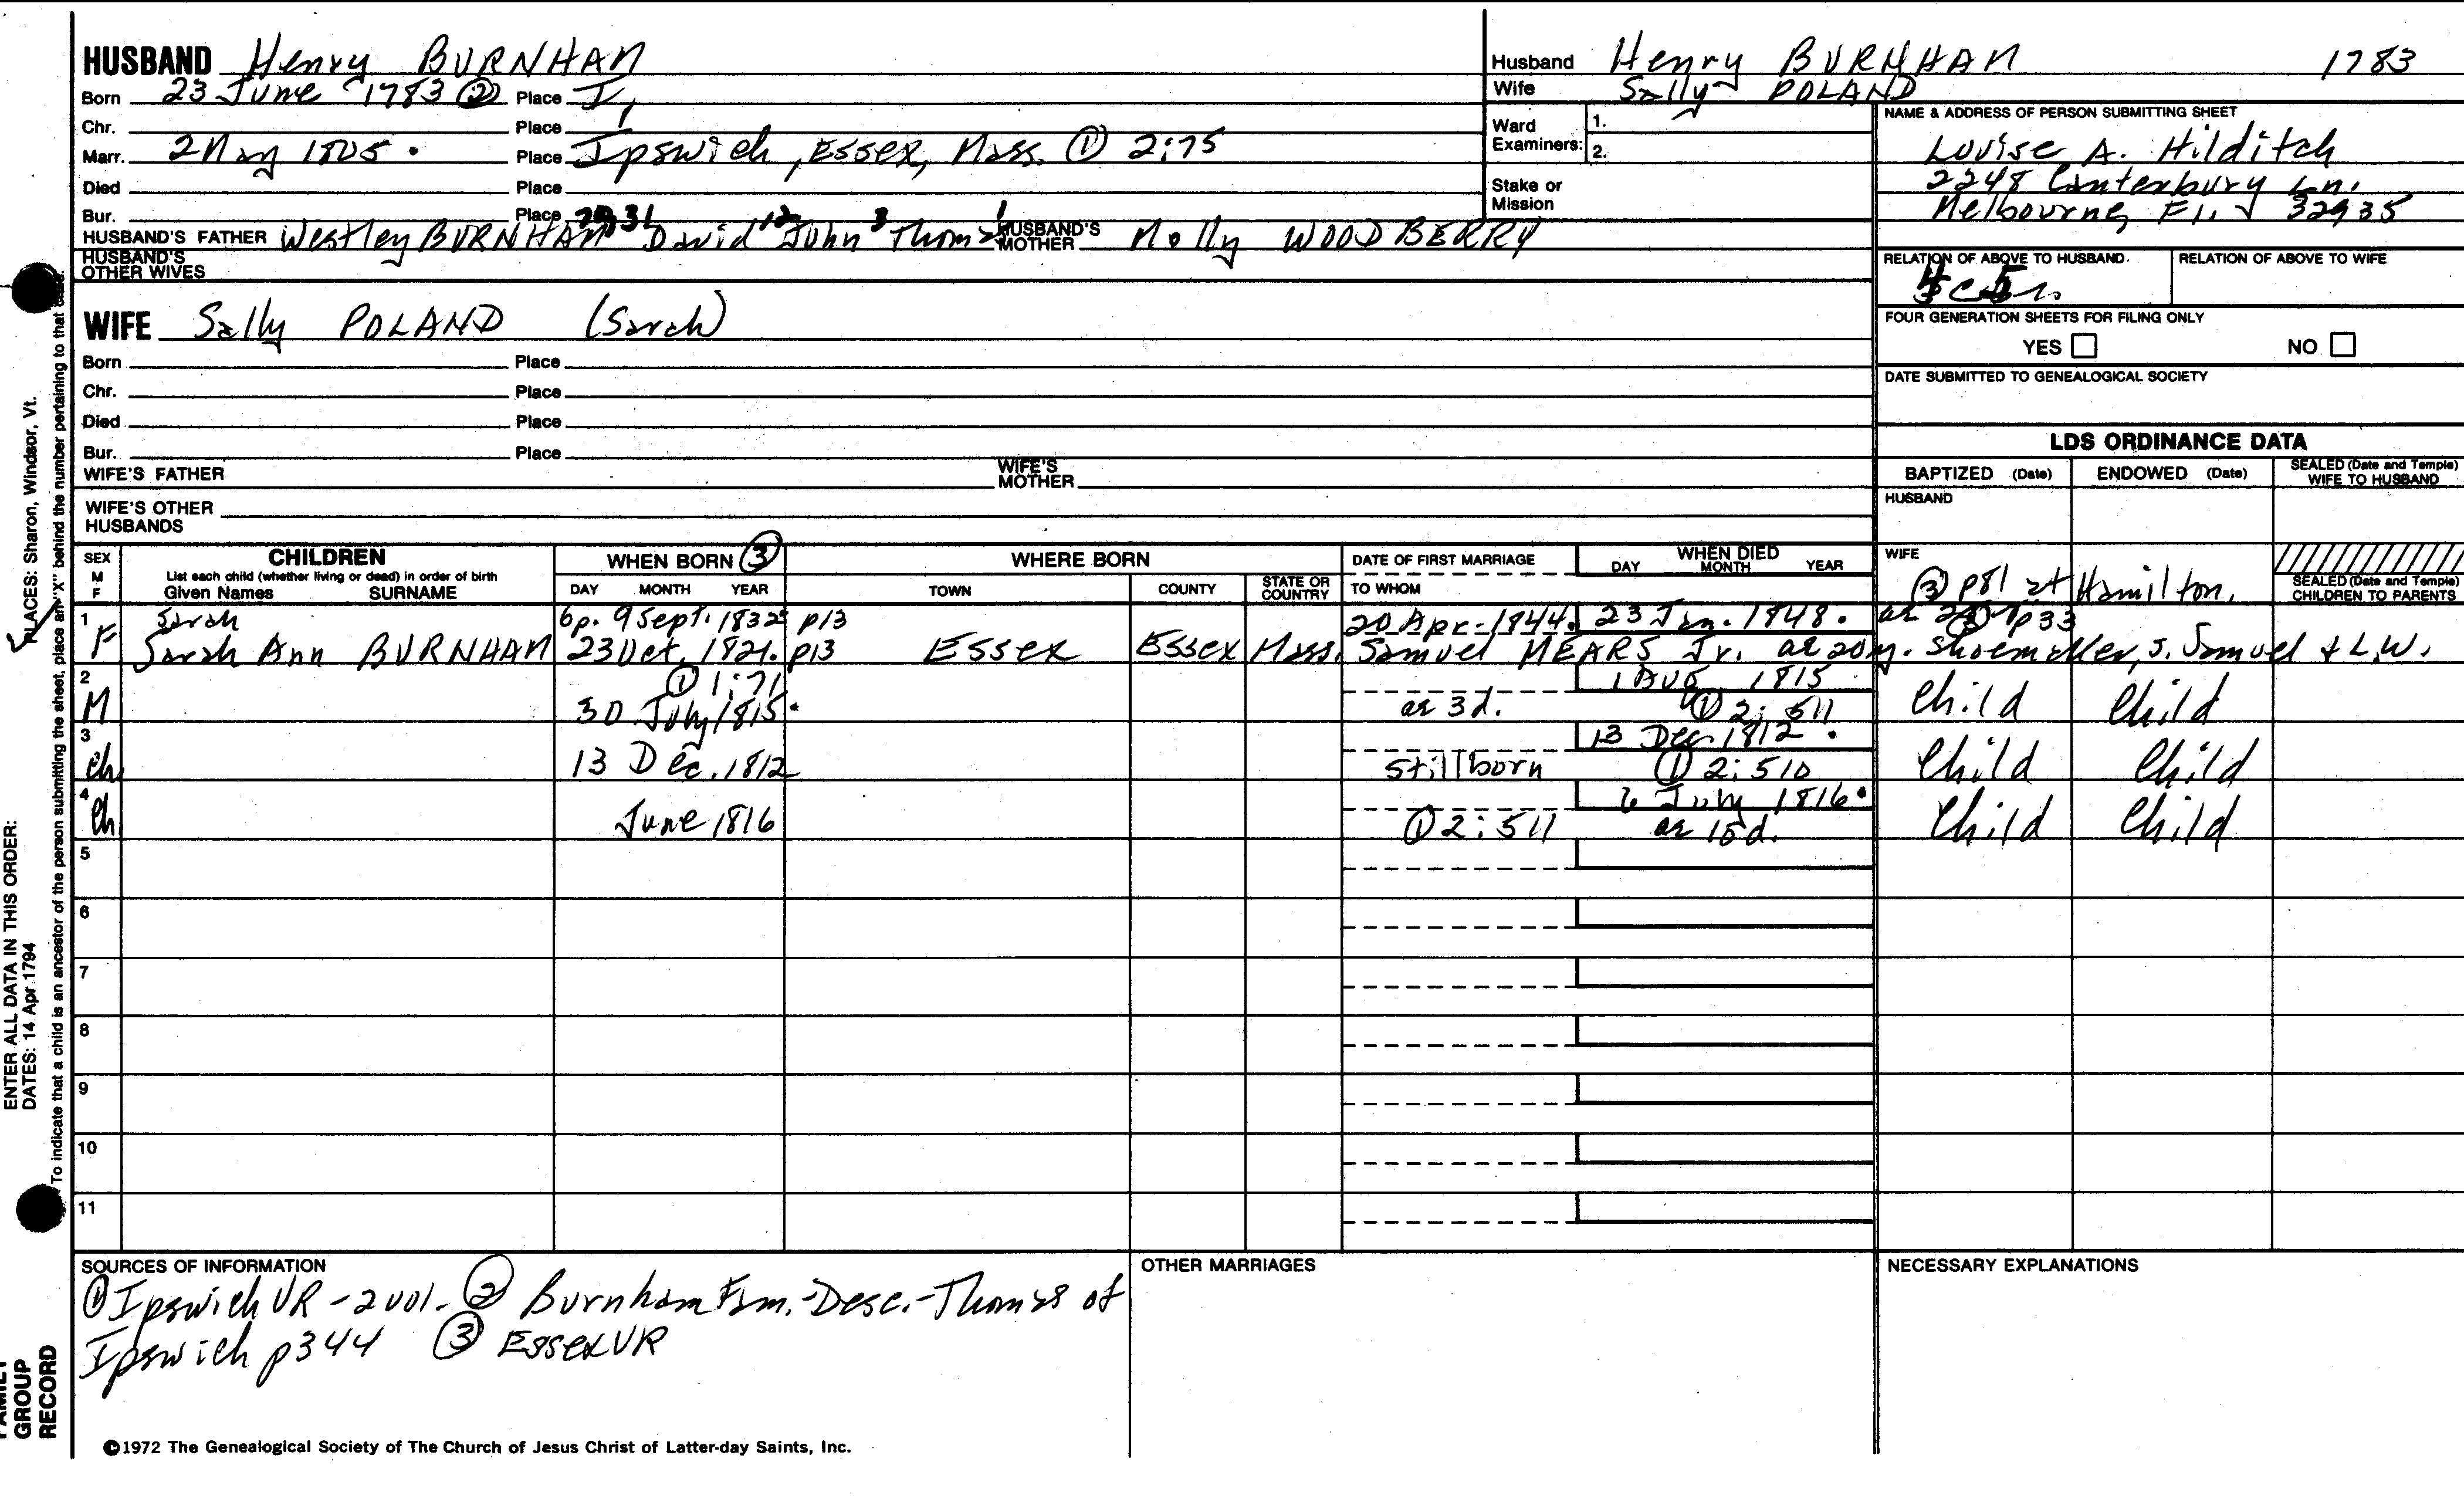 HUSBAND Henry BURNHAM
Born 23 June 1783 ② Place I,
Chr. Place
Marr. 2 May 1805. Place Ipswich, Essex, Mass. ① 2:75
Died Place
Bur. Place
HUSBAND'S FATHER Westley BURNHAM David John Thomas HUSBAND'S MOTHER Molly WOODBERRY
HUSBAND'S OTHER WIVES
Husband Henry BURNHAM 1783
Wife Sally POLAND
Ward Examiners: 1.
2.
Stake or Mission
NAME & ADDRESS OF PERSON SUBMITTING SHEET
Louise A. Hilditch
2248 Canterbury Ln.
Melbourne, Fl. 32935
RELATION OF ABOVE TO HUSBAND. RELATION OF ABOVE TO WIFE
FOUR GENERATION SHEETS FOR FILING ONLY
YES NO
DATE SUBMITTED TO GENEALOGICAL SOCIETY
WIFE Sally POLAND (Sarah)
Born Place
Chr. Place
Died Place
Bur. Place
WIFE'S FATHER WIFE'S MOTHER
WIFE'S OTHER HUSBANDS
LDS ORDINANCE DATA
BAPTIZED (Date) ENDOWED (Date) SEALED (Date and Temple) WIFE TO HUSBAND
HUSBAND
WIFE
③ p81 at Hamilton.
SEALED (Date and Temple) CHILDREN TO PARENTS
SEX M F CHILDREN WHEN BORN ③ WHERE BORN DATE OF FIRST MARRIAGE WHEN DIED
List each child (whether living or dead) in order of birth
Given Names SURNAME DAY MONTH YEAR TOWN COUNTY STATE OR COUNTRY TO WHOM DAY MONTH YEAR
1 Sarah bp. 9 Sept. 1832 p13 20 Apr. 1844. 23 Jan. 1848. p33
F Sarah Ann BURNHAM 23 Oct. 1821. p13 Essex Essex Mass. Samuel MEARS Jr. ae 20y. Shoemaker, s. Samuel & L.W.
2 ① 1:71 1 Aug 1815
M 30 July 1815. ae 3d. ① 2:511 Child Child
3 13 Dec 1812.
Ch. 13 Dec. 1812 Stillborn ① 2:510 Child Child
4 6 July 1816.
Ch June 1816 ① 2:511 ae 15d. Child Child
5
6
7
8
9
10
11
SOURCES OF INFORMATION
① Ipswich VR - 2 vol. - ② Burnham Fam. - Desc. - Thomas of
Ipswich p344 ③ Essex VR
OTHER MARRIAGES
NECESSARY EXPLANATIONS
©1972 The Genealogical Society of The Church of Jesus Christ of Latter-day Saints, Inc.
ENTER ALL DATA IN THIS ORDER:
DATES: 14 Apr 1794
PLACES: Sharon, Windsor, Vt.
To indicate that a child is an ancestor of the person submitting the sheet, place an "X" behind the number pertaining to that
FAMILY GROUP RECORD